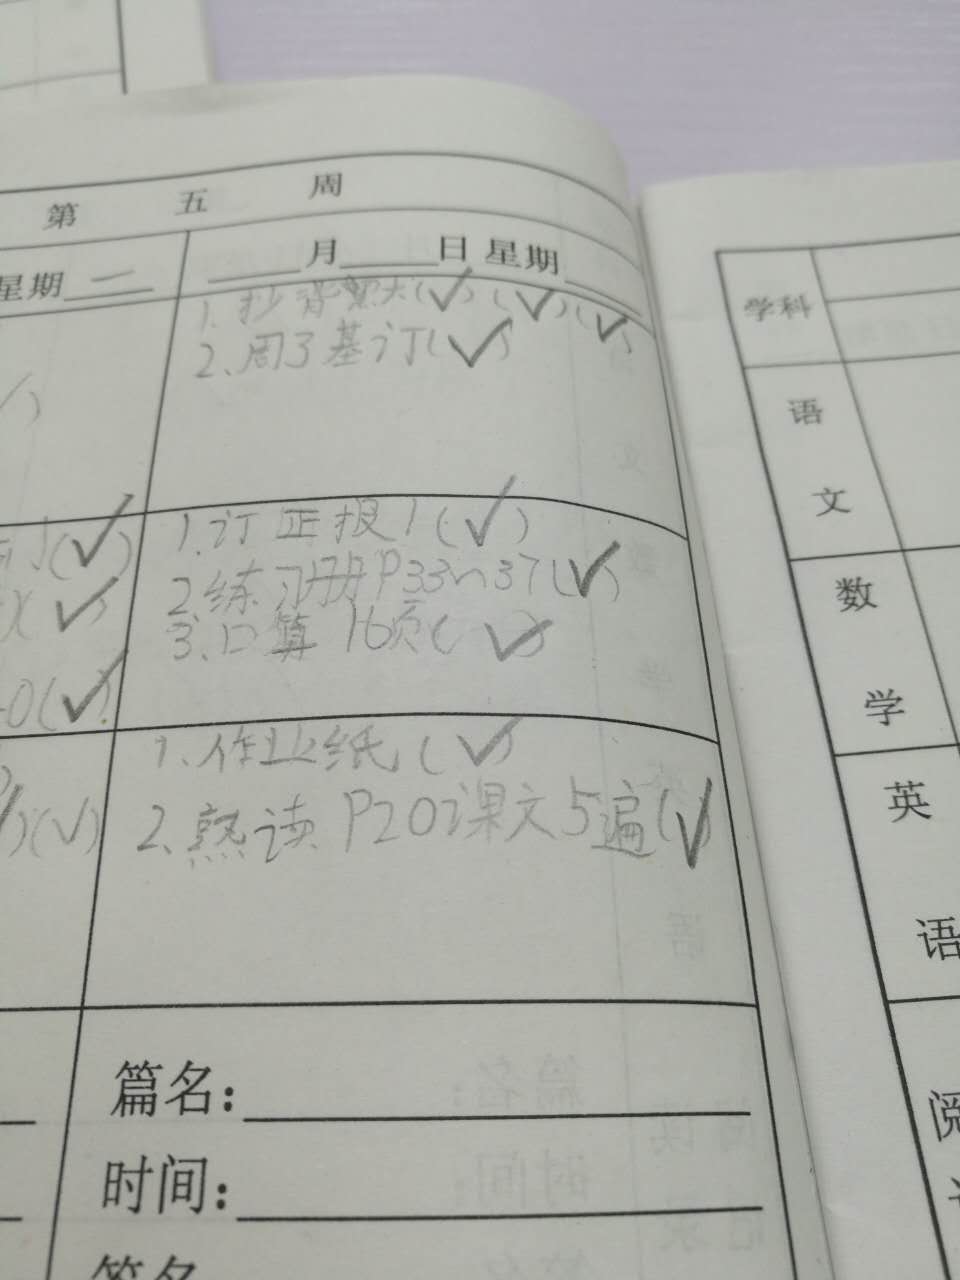 第 五 周
星期二
月 日 星期
1. 抄背默大(✓)(✓)(✓)
2. 周3基订(✓)
(✓)
(✓)
0(✓)
1. 订正报1(✓)
2. 练习册P33~37(✓)
3. 口算16页(✓)
(✓)
1. 作业纸(✓)
2. 熟读P20课文5遍(✓)
篇名：
时间：
签名
学科
语文
数学
英语
阅